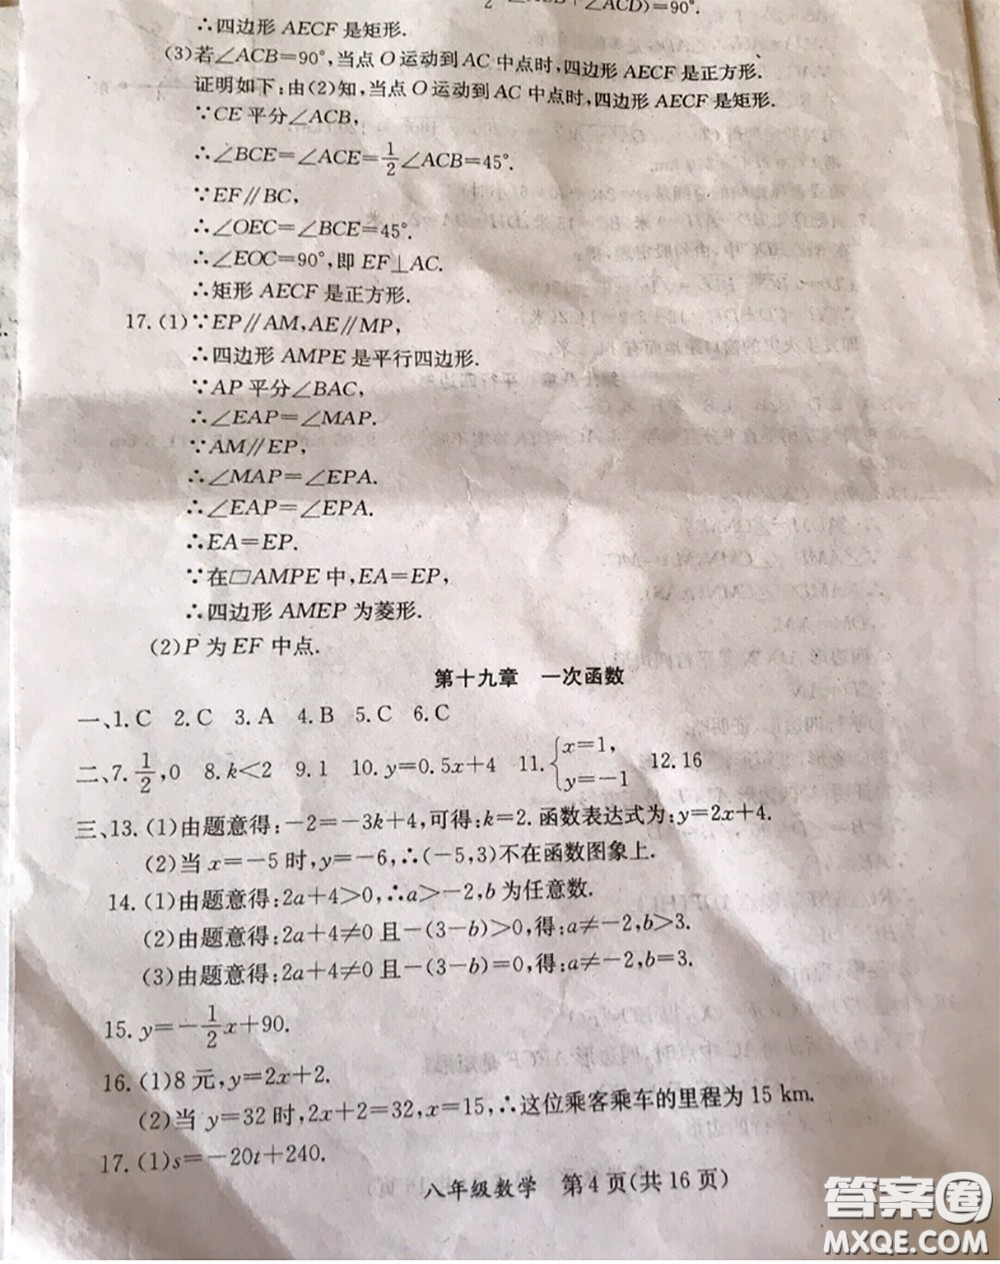 ∠ACD)=90°.
∴四边形 AECF 是矩形.
(3)若∠ACB=90°,当点 O 运动到 AC 中点时,四边形 AECF 是正方形.
证明如下:由(2)知,当点 O 运动到 AC 中点时,四边形 AECF 是矩形.
∵CE 平分∠ACB,
∴∠BCE=∠ACE=1/2∠ACB=45°.
∵EF∥BC,
∴∠OEC=∠BCE=45°.
∴∠EOC=90°,即 EF⊥AC.
∴矩形 AECF 是正方形.
17.(1)∵EP∥AM,AE∥MP,
∴四边形 AMPE 是平行四边形.
∵AP 平分∠BAC,
∴∠EAP=∠MAP.
∵AM∥EP,
∴∠MAP=∠EPA.
∴∠EAP=∠EPA.
∴EA=EP.
∵在□AMPE 中,EA=EP,
∴四边形 AMEP 为菱形.
(2)P 为 EF 中点.
第十九章 一次函数
一、1.C 2.C 3.A 4.B 5.C 6.C
二、7.1/2,0 8.k<2 9.1 10.y=0.5x+4 11.{x=1, y=-1 12.16
三、13.(1)由题意得:-2=-3k+4,可得:k=2.函数表达式为:y=2x+4.
(2)当 x=-5 时,y=-6,∴(-5,3)不在函数图象上.
14.(1)由题意得:2a+4>0,∴a>-2,b 为任意数.
(2)由题意得:2a+4≠0 且-(3-b)>0,得:a≠-2,b>3.
(3)由题意得:2a+4≠0 且-(3-b)=0,得:a≠-2,b=3.
15.y=-1/2x+90.
16.(1)8 元,y=2x+2.
(2)当 y=32 时,2x+2=32,x=15,∴这位乘客乘车的里程为 15 km.
17.(1)s=-20t+240.
八年级数学 第 4 页(共 16 页)
答案圈
MXQE.COM